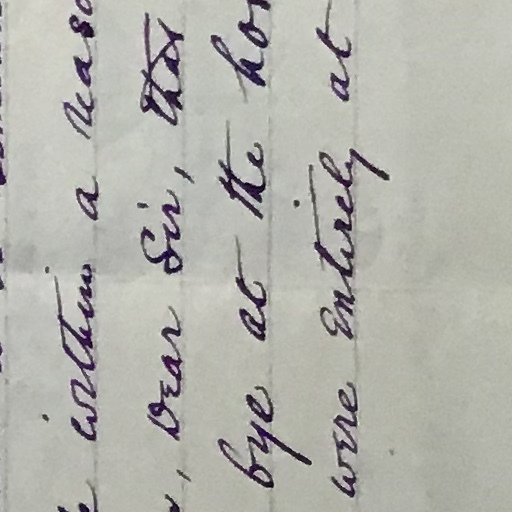 within a reaso
, Dear Sir, that
bye at the hor
were entirely at